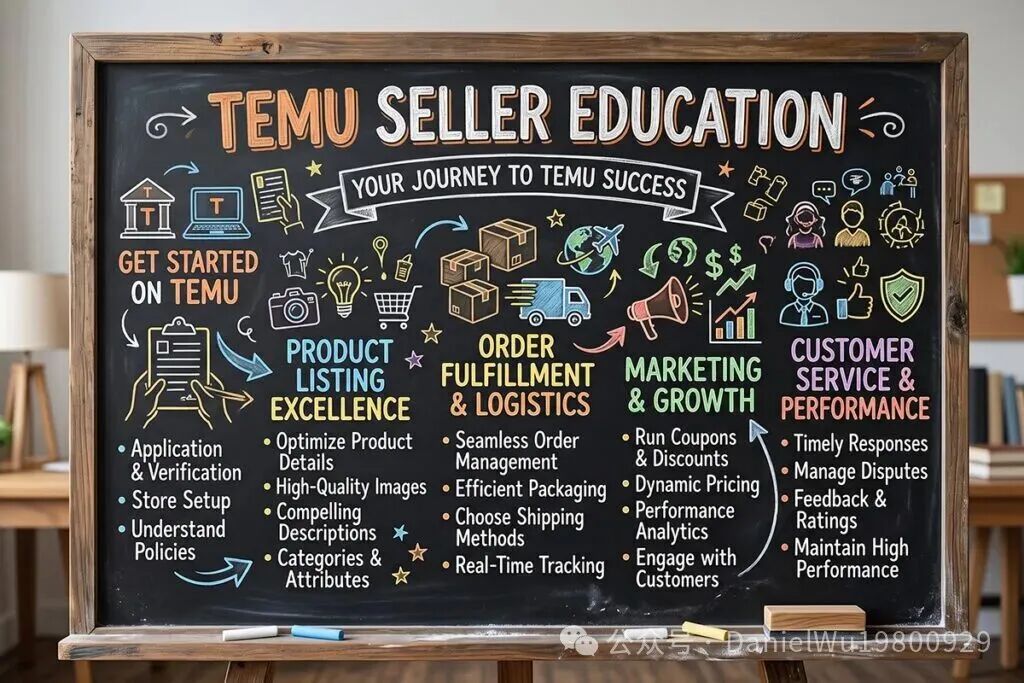 TEMU SELLER EDUCATION
YOUR JOURNEY TO TEMU SUCCESS
T
T
GET STARTED
ON TEMU
• Application
& Verification
• Store Setup
• Understand
Policies
PRODUCT
LISTING
EXCELLENCE
• Optimize Product
Details
• High-Quality Images
• Compelling
Descriptions
• Categories &
Attributes
ORDER
FULFILLMENT
& LOGISTICS
• Seamless Order
Management
• Efficient Packaging
• Choose Shipping
Methods
• Real-Time Tracking
$ $
MARKETING
& GROWTH
• Run Coupons
& Discounts
• Dynamic Pricing
• Performance
Analytics
• Engage with
Customers
CUSTOMER
SERVICE &
PERFORMANCE
• Timely Responses
• Manage Disputes
• Feedback &
Ratings
• Maintain High
Performance
公众号、DanielWu19800929